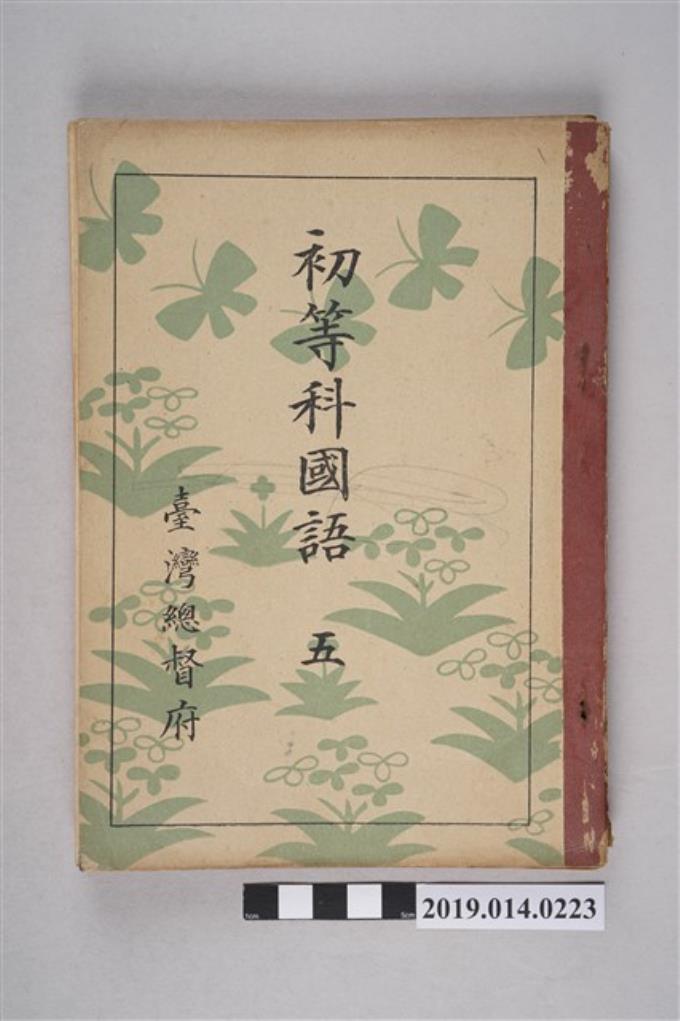 初等科國語 五
臺灣總督府
1cm 5cm
2019.014.0223